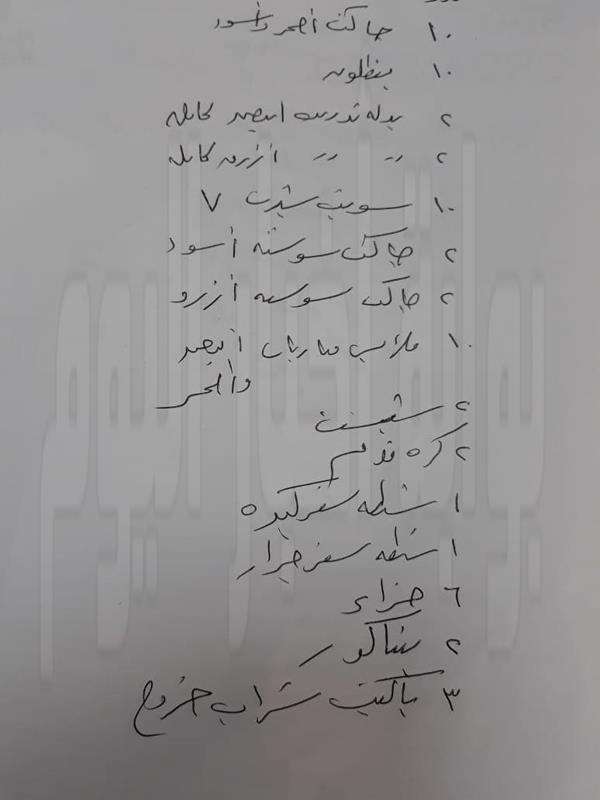 ١٠ جاكت أحمر وأسود
١٠ بنطلون
٢ بدله تدريب ابيض كامله
٢ 〃 〃 أزرق كامله
١٠ سويت شيرت ٧
٢ جاكت سوسته أسود
٢ جاكت سوسته أزرق
١٠ ملابس مباريات أبيض
واحمر
٢ شيت
٢ كره قدم
١ شنطه سفر كبيره
١ شنطه سفر جرار
٦ حزاء
٢ بنتاكور
٣ باكيت شراب خروج